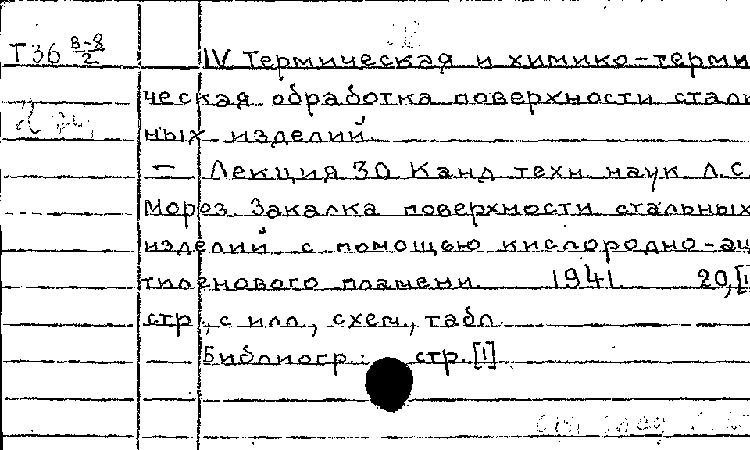 Т36 в-8/2
IV Термическая и химико-терми
ческая обработка поверхности сталь
ных изделий.
— Лекция 30 Канд техн наук Л.С.
Мороз. Закалка поверхности стальных
изделий с помощью кислородно-ац
тиленового пламени. 1941. 20,[1
стр., с илл., схем., табл.
Библиогр.: стр. [1]